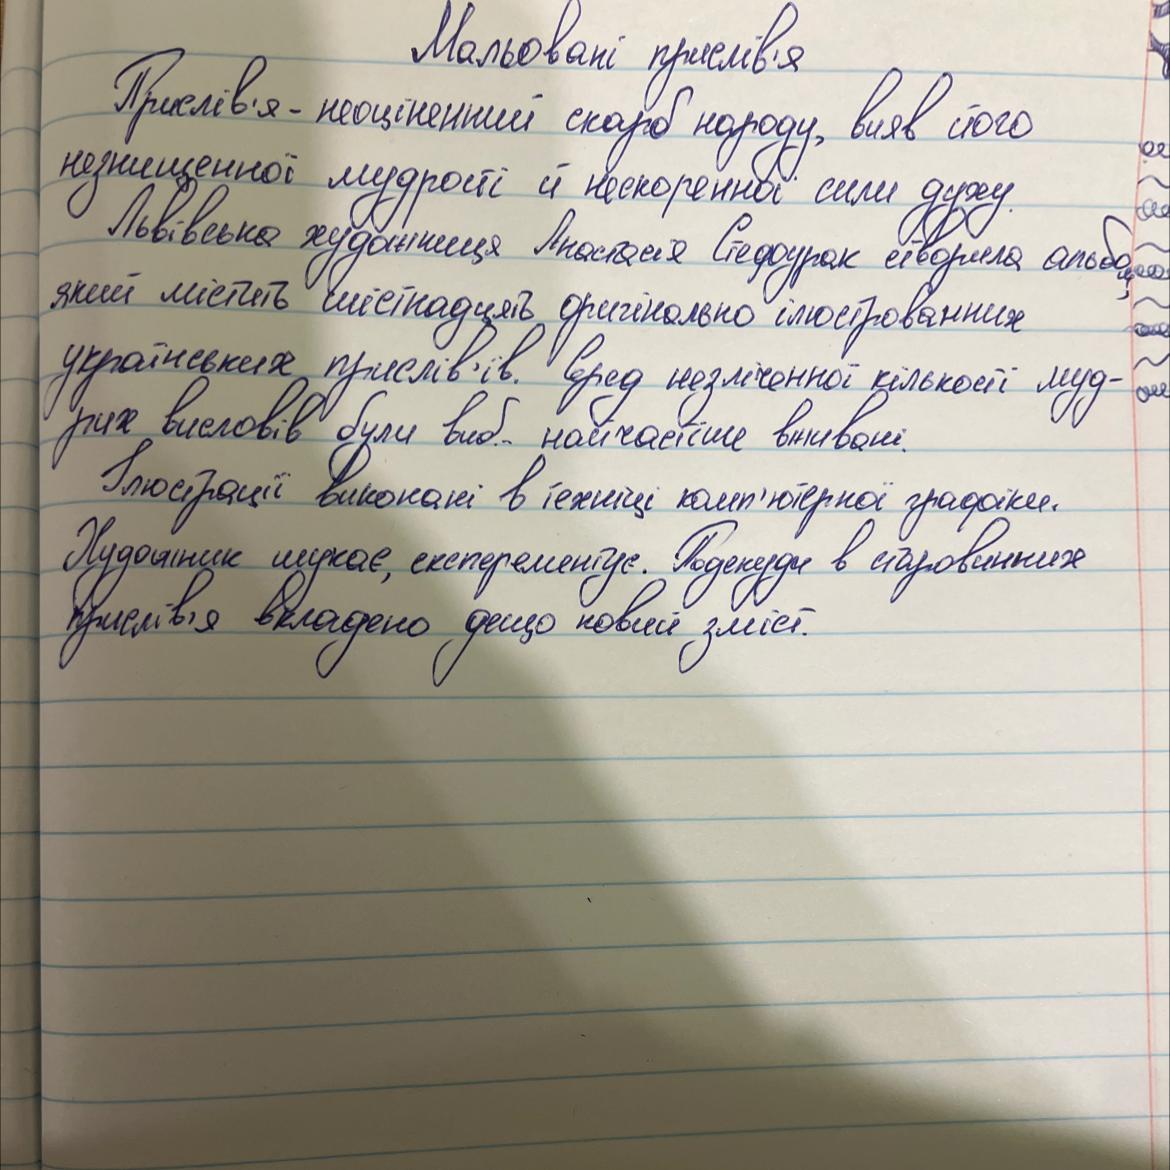 Мальовані прислів'я
Прислів'я - неоціненний скарб народу, вияв його
незнищенної мудрості й нескоренної сили духу.
Львівська художниця Анастасія Стефурак створила альбом,
який містить шістнадцять оригінально ілюстрованних
українських прислів'їв. Серед незліченної кількості муд-
рих висловів були виб. найчастіше вживані.
Ілюстрації виконані в техніці комп'ютерної графіки.
Художник шукає, експерементує. Подекуди в старовинних
прислів'я вкладено дещо новий зміст.